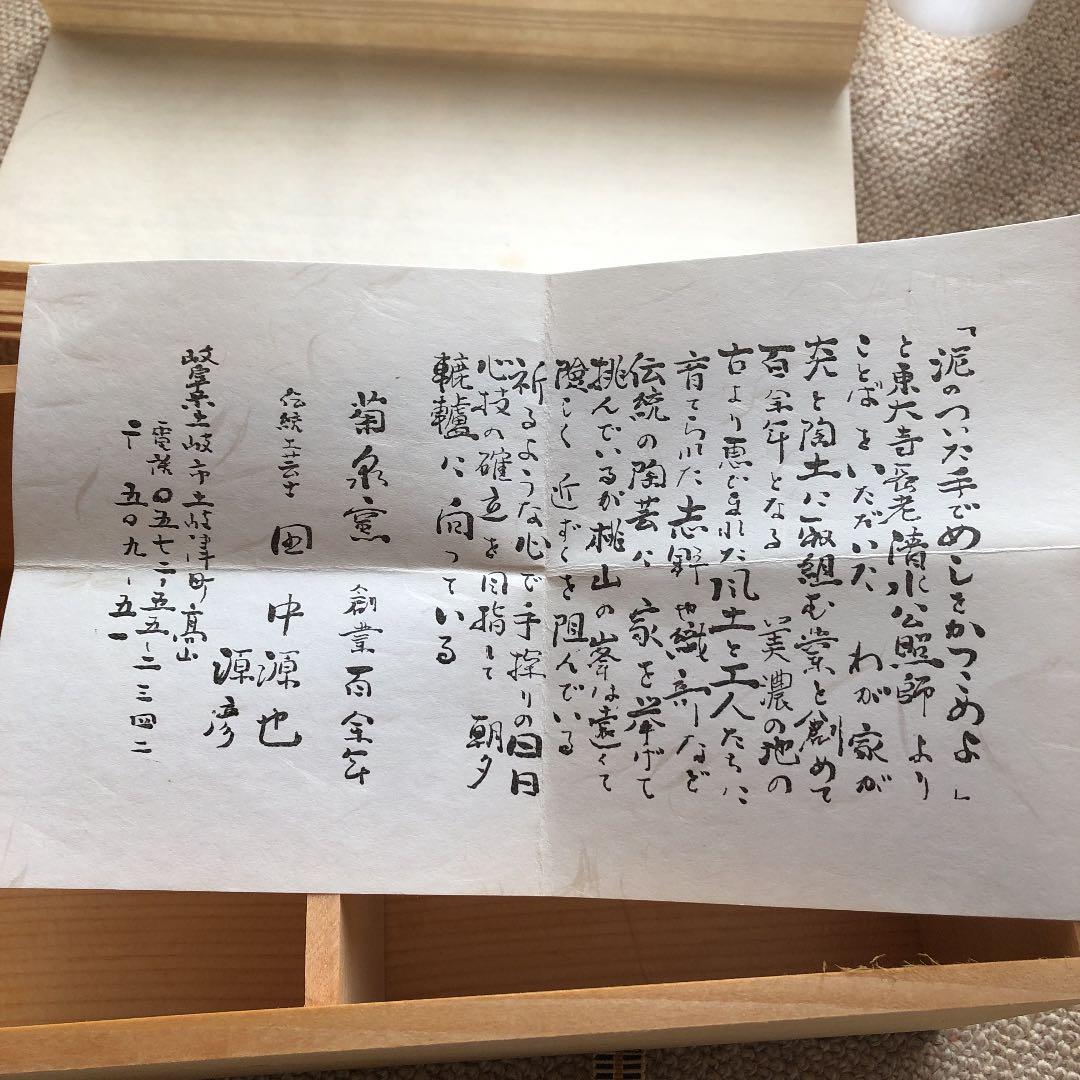 「泥のついた手でめしをかつこめよ」
と東大寺長老清水公照師より
ことばをいただいた わが家が
炎と陶土に取組む業を創めて
百余年となる 美濃の地の
古より恵まれた風土と工人たちに
育てられた志野や織部など
伝統の陶芸に家を挙げて
挑んでいるが桃山の峯は遠くて
険しく近ずくを阻んでいる
祈るような心で手探りの毎日
心技の確立を目指して 朝夕
轆轤に向っている
菊泉窯 創業百余年
伝統工芸士 田中源也
源彦
岐阜県土岐市土岐津町高山
電話〇五七二-五五-二三四二
〒五〇九-五一